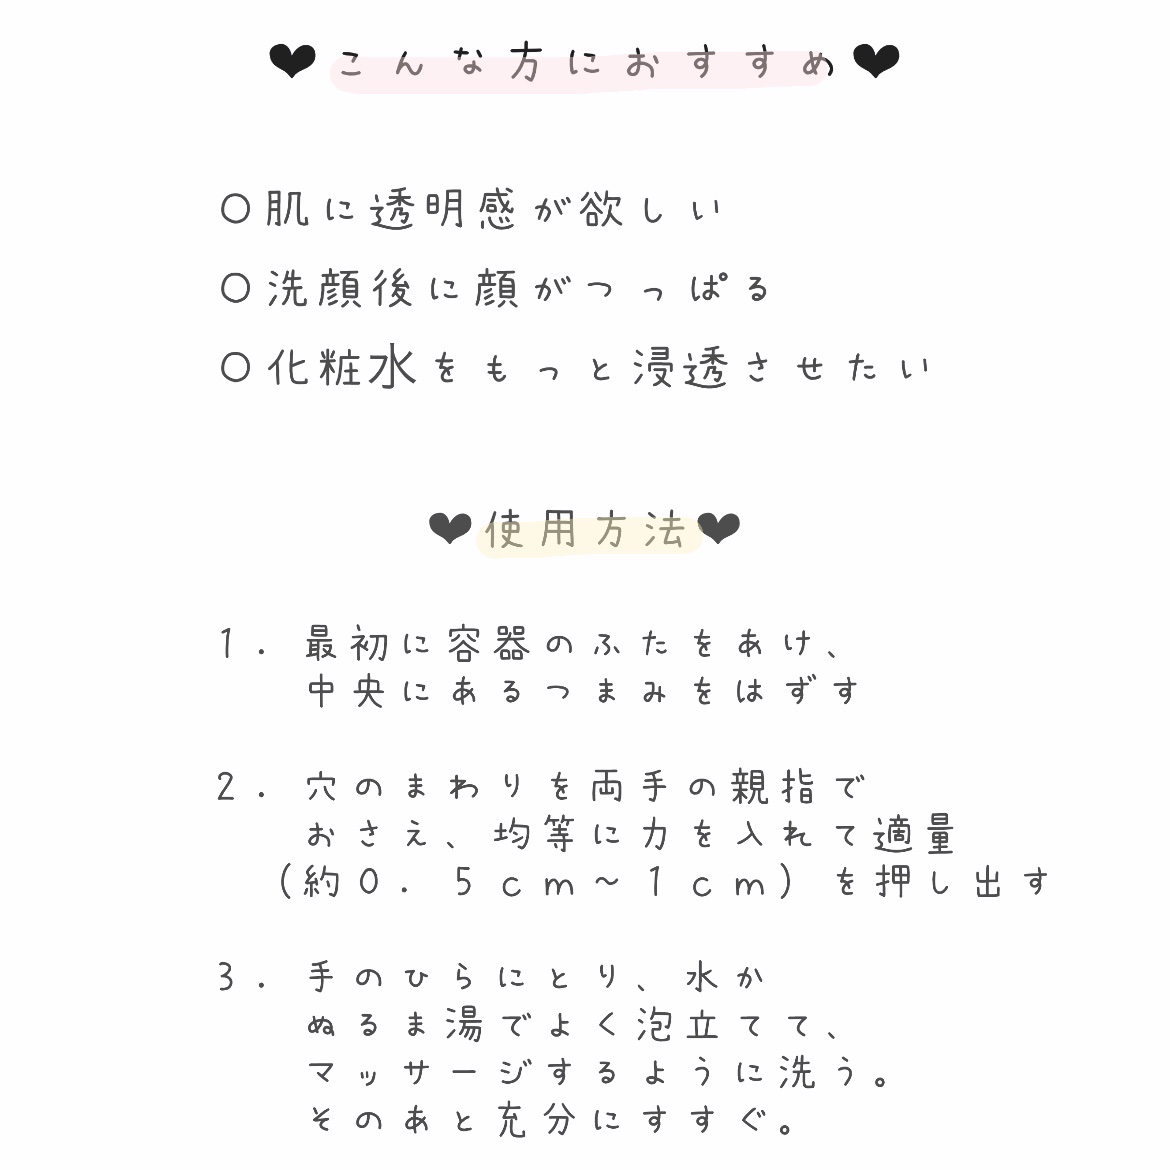 ❤こんな方におすすめ❤
○肌に透明感が欲しい
○洗顔後に顔がつっぱる
○化粧水をもっと浸透させたい
❤使用方法❤
1. 最初に容器のふたをあけ、
中央にあるつまみをはずす
2. 穴のまわりを両手の親指で
おさえ、均等に力を入れて適量
(約0.5cm~1cm)を押し出す
3. 手のひらにとり、水か
ぬるま湯でよく泡立てて、
マッサージするように洗う。
そのあと充分にすすぐ。